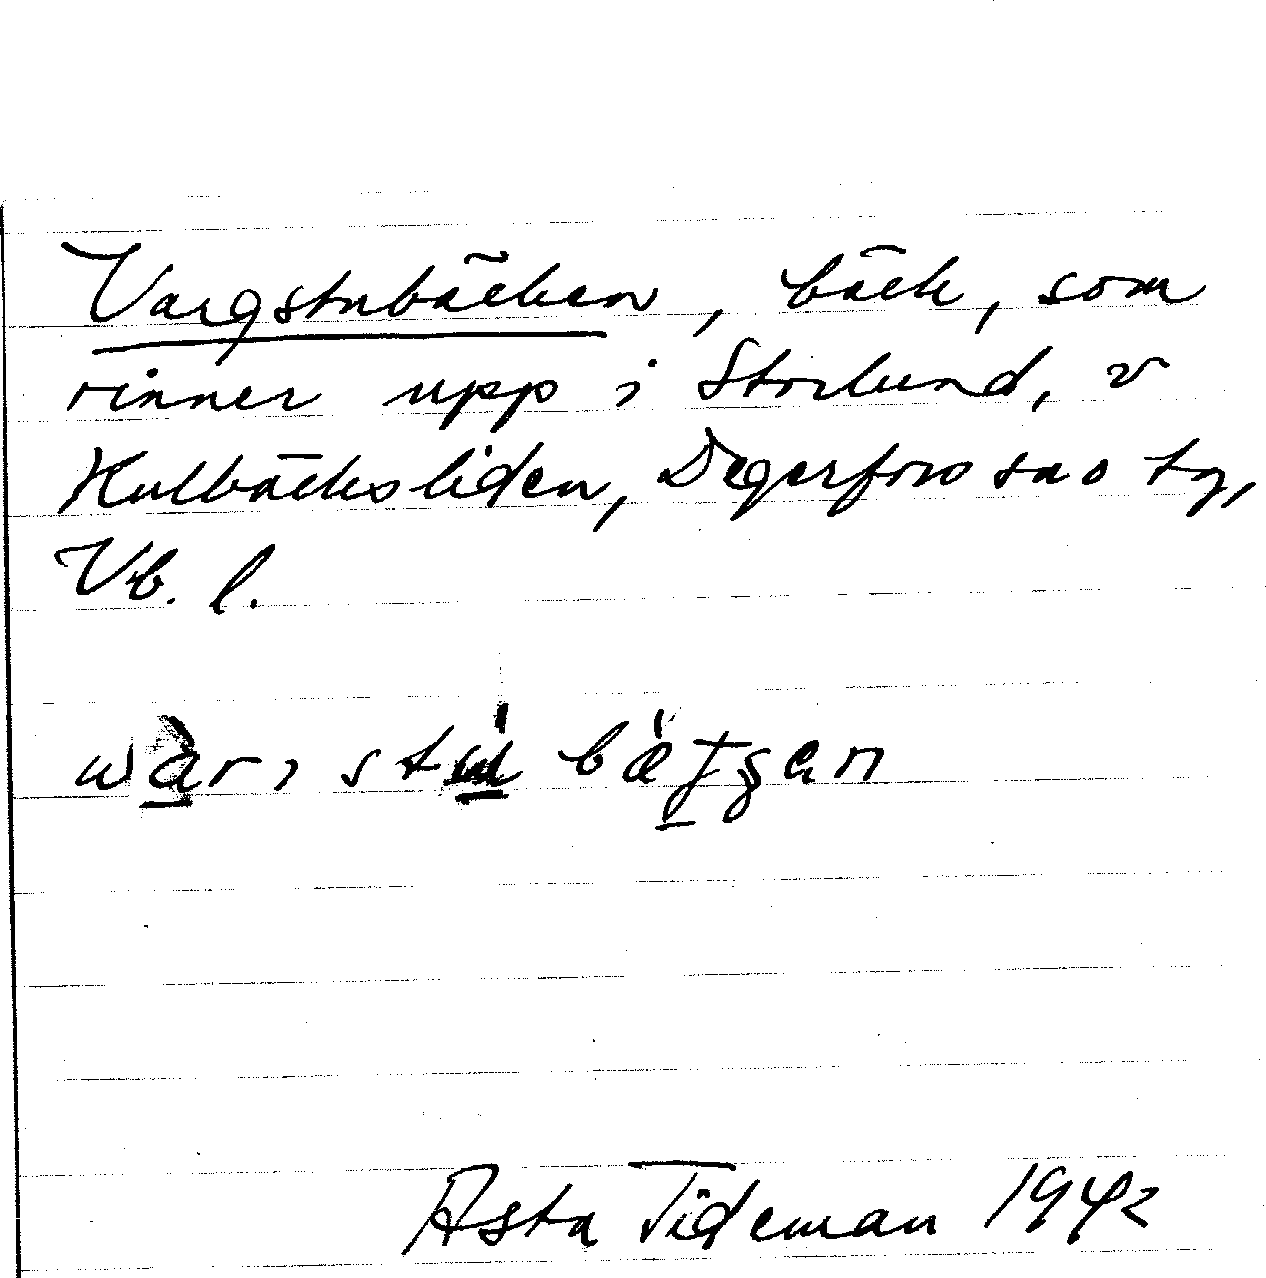 Vargstubäcken, bäck, som
rinner upp i Storlund, v
Kulbäcksliden, Degerfors sns tg,
Vb. l.
Asta Tideman 1942